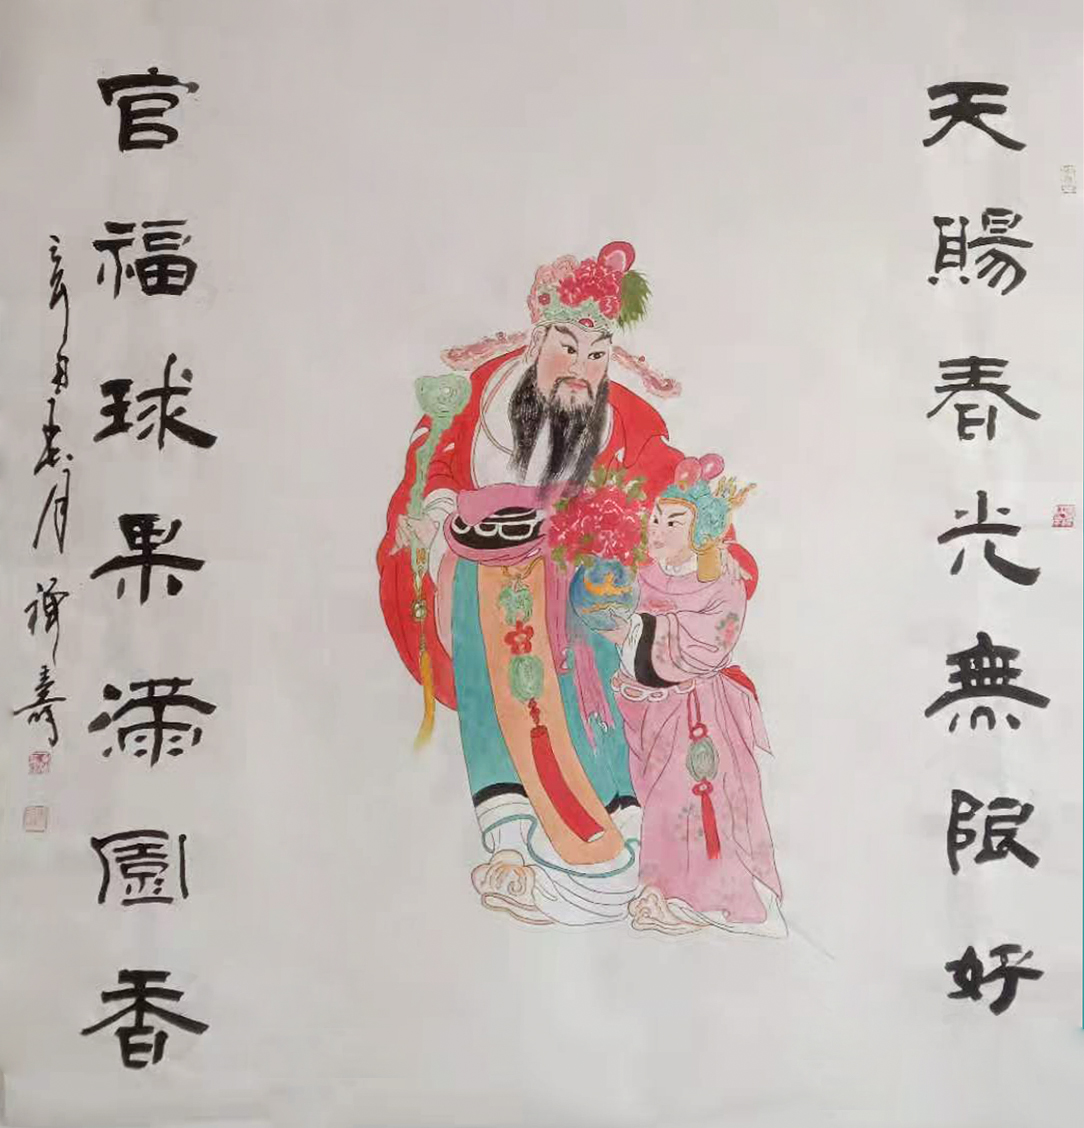 天賜春光無限好
官福球果满園香
辛丑春月